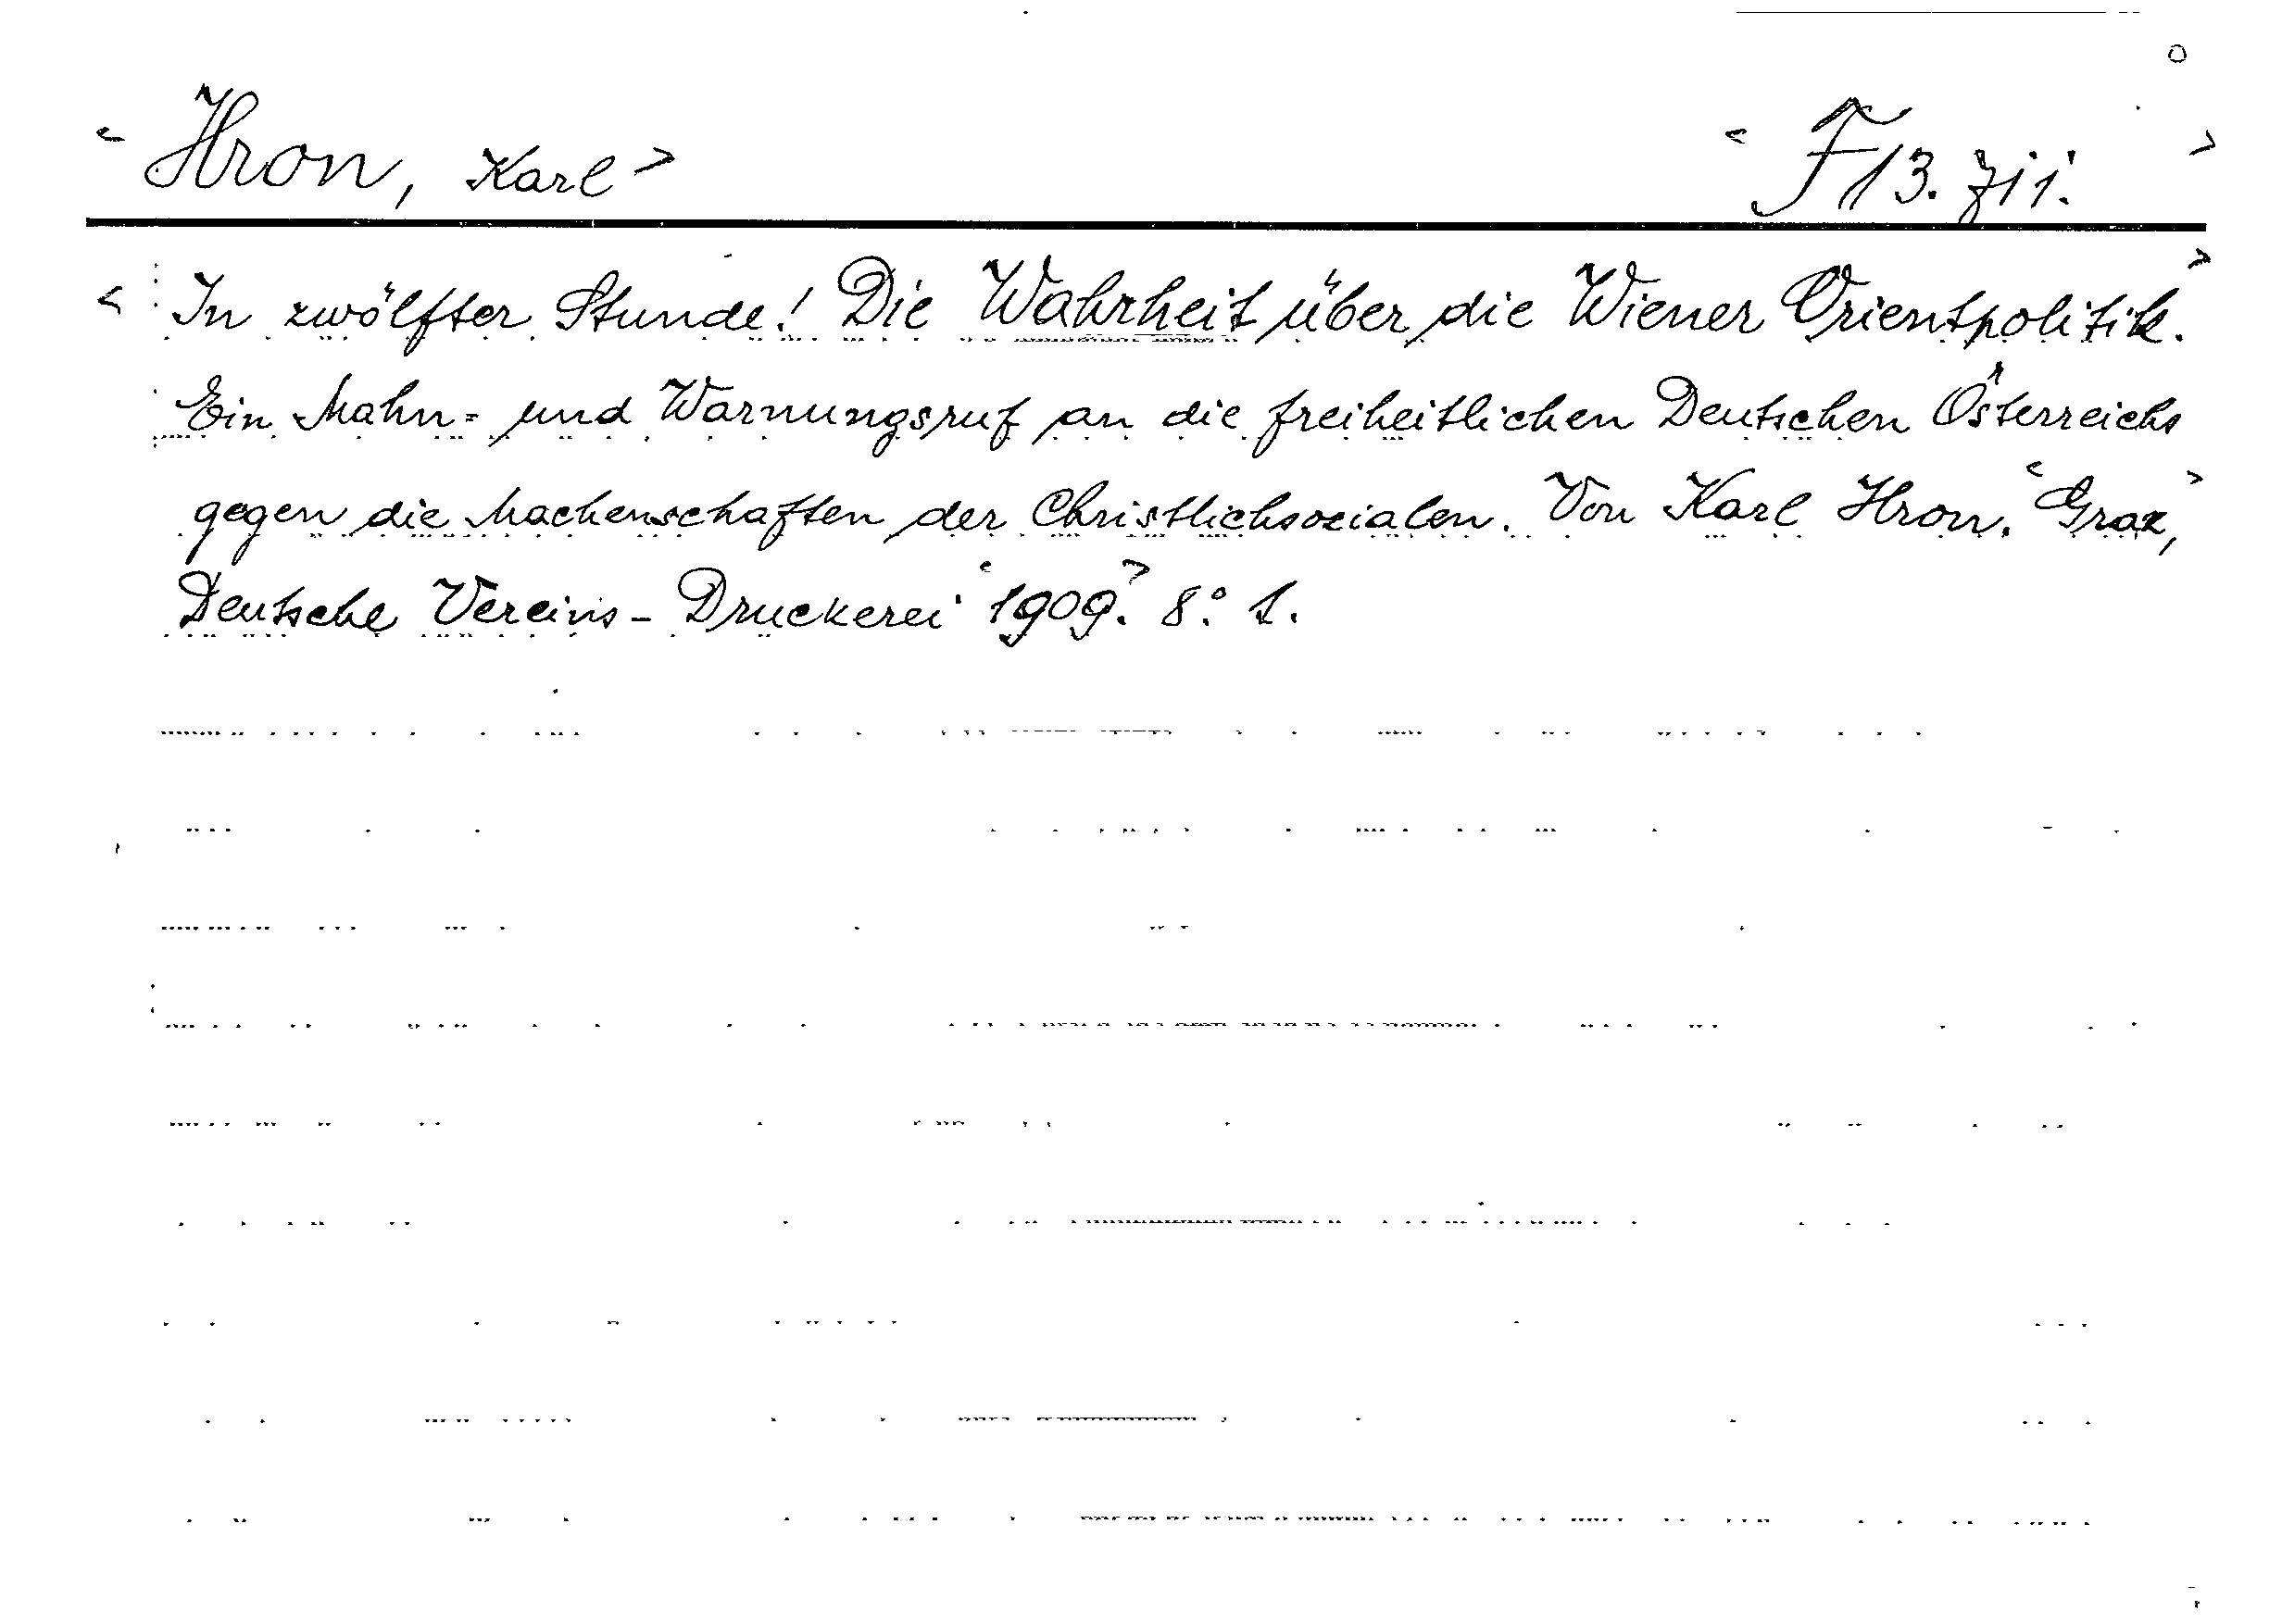 < Hron, Karl > < F 13. zii. >
< In zwölfter Stunde! Die Wahrheit über die Wiener Orientpolitik. >
Ein Mahn- und Warnungsruf an die freiheitlichen Deutschen Österreichs
gegen die Machenschaften der Christlichsozialen. Von Karl Hron. < Graz, >
Deutsche Vereins-Druckerei < 1909. > 8° 1.